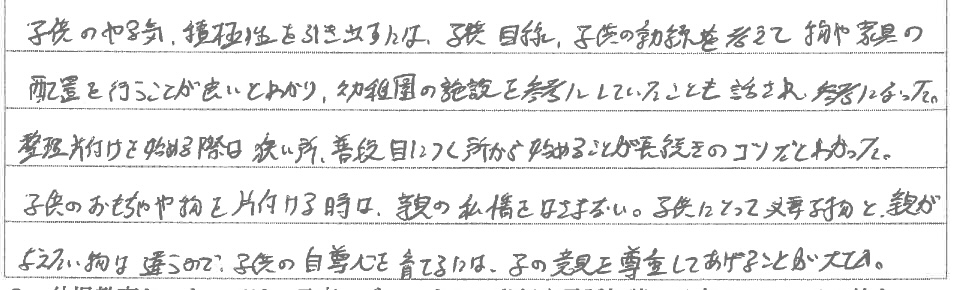 子供のやる気、積極性を引き出すには、子供目線、子供の動線を考えて物や家具の
配置を行うことが良いとわかり、幼稚園の施設を参考にしていたことも話され、参考になった。
整理片付けを始める際は狭い所、普段目につく所から始めることが長続きのコツだとわかった。
子供のおもちゃや物を片付ける時は、親の私情をはさまない。子供にとって必要な物と、親が
与えたい物は違うので、子供の自尊心を育てるには、子の意見を尊重してあげることが大切。